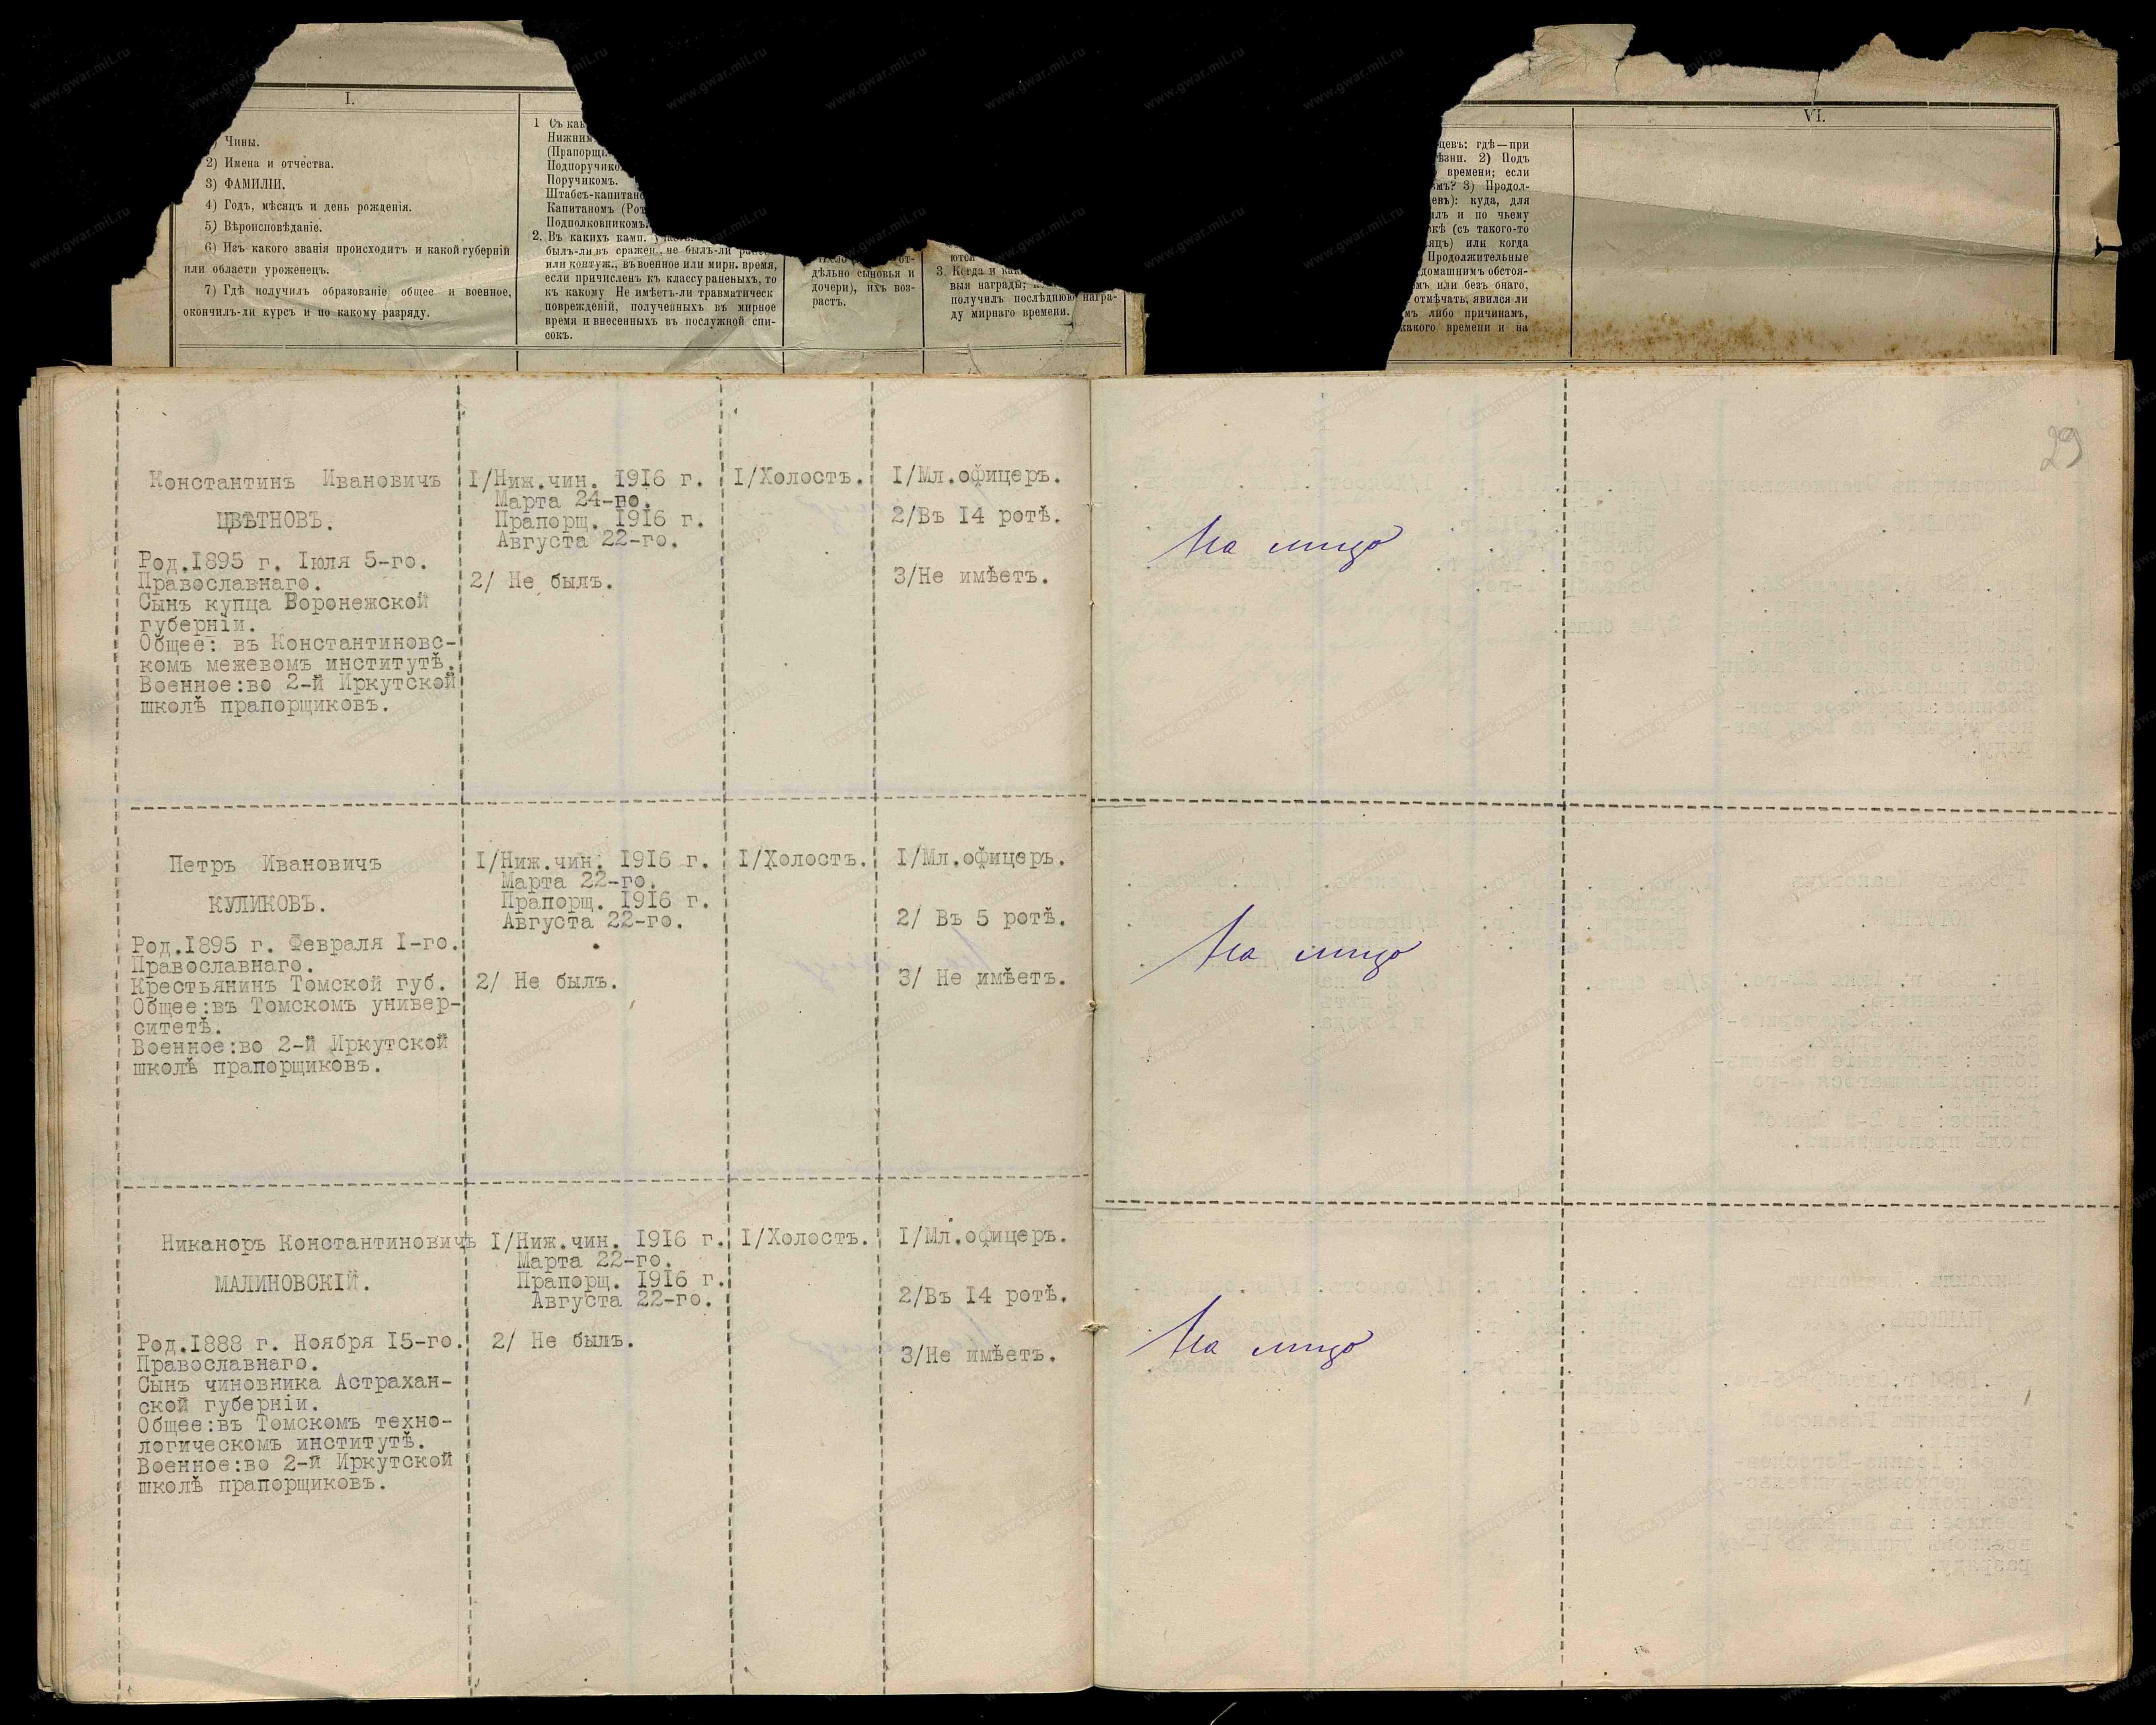 I.
Чины.
2) Имена и отчества.
3) ФАМИЛІИ.
4) Годъ, мѣсяцъ и день рожденія.
5) Вѣроисповѣданіе.
6) Изъ какого званія происходитъ и какой губерніи
или области уроженецъ.
7) Гдѣ получилъ образованіе общее и военное,
окончилъ-ли курсъ и по какому разряду.
1 Съ
Нижним
(Прапорщи
Подпоручико
Поручикомъ.
Штабсъ-капитано
Капитаномъ (Рот
Подполковникомъ.
2. Въ какихъ камп.
былъ-ли въ сражен., не былъ-ли
или контуж., въ военное или мирн. время,
если причисленъ къ классу раненыхъ, то
къ какому Не имѣетъ-ли травматическ
поврежденій, полученныхъ въ мирное
время и внесенныхъ въ послужной спи-
сокъ.
от-
дѣльно сыновья и
дочери), ихъ воз-
растъ.
ются
3. Когда и
выя награды;
получилъ послѣднюю награ-
ду мирнаго времени.
цевъ: гдѣ—при
ѣзни. 2) Подъ
времени; если
мъ? 3) Продол-
евъ): куда, для
илъ и по чьему
кѣ (съ такого-то
яцъ) или когда
Продолжительные
домашнимъ обстоя-
мъ или безъ онаго,
отмѣчать, явился ли
мъ либо причинамъ,
какого времени и на
VI.
29
Константинъ Ивановичъ
ЦВѢТНОВЪ.
Род.1895 г. Іюля 5-го.
Православнаго.
Сынъ купца Воронежской
губерніи.
Общее: въ Константиновс-
комъ межевомъ институтѣ.
Военное:во 2-й Иркутской
школѣ прапорщиковъ.
I/Ниж.чин. 1916 г.
Марта 24-го.
Прапорщ. 1916 г.
Августа 22-го.
2/ Не былъ.
I/Холостъ.
I/Мл.офицеръ.
2/Въ I4 ротѣ.
3/Не имѣетъ.
На лицо
Петръ Ивановичъ
КУЛИКОВЪ.
Род.1895 г. Февраля I-го.
Православнаго.
Крестьянинъ Томской губ.
Общее:въ Томскомъ универ-
ситетѣ.
Военное:во 2-й Иркутской
школѣ прапорщиковъ.
I/Ниж.чин. 1916 г.
Марта 22-го.
Прапорщ. 1916 г.
Августа 22-го.
2/ Не былъ.
I/Холостъ.
I/Мл.офицеръ.
2/ Въ 5 ротѣ.
3/ Не имѣетъ.
На лицо
Никаноръ Константиновичъ
МАЛИНОВСКІЙ.
Род.1888 г. Ноября I5-го.
Православнаго.
Сынъ чиновника Астрахан-
ской губерніи.
Общее:въ Томскомъ техно-
логическомъ институтѣ.
Военное:во 2-й Иркутской
школѣ прапорщиковъ.
I/Ниж.чин. 1916 г.
Марта 22-го.
Прапорщ. 1916 г.
Августа 22-го.
2/ Не былъ.
I/Холостъ.
I/Мл.офицеръ.
2/Въ I4 ротѣ.
3/Не имѣетъ.
На лицо
www.gwar.mil.ru